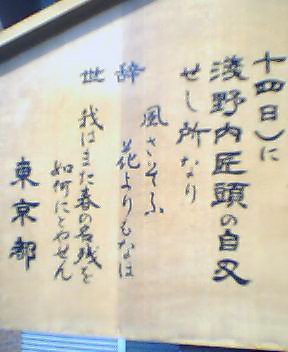 十四日)に
浅野内匠頭の自刃
せし所なり
辞世
風さそふ
花よりもなほ
我はまた春の名残を
如何にとやせん
東京都